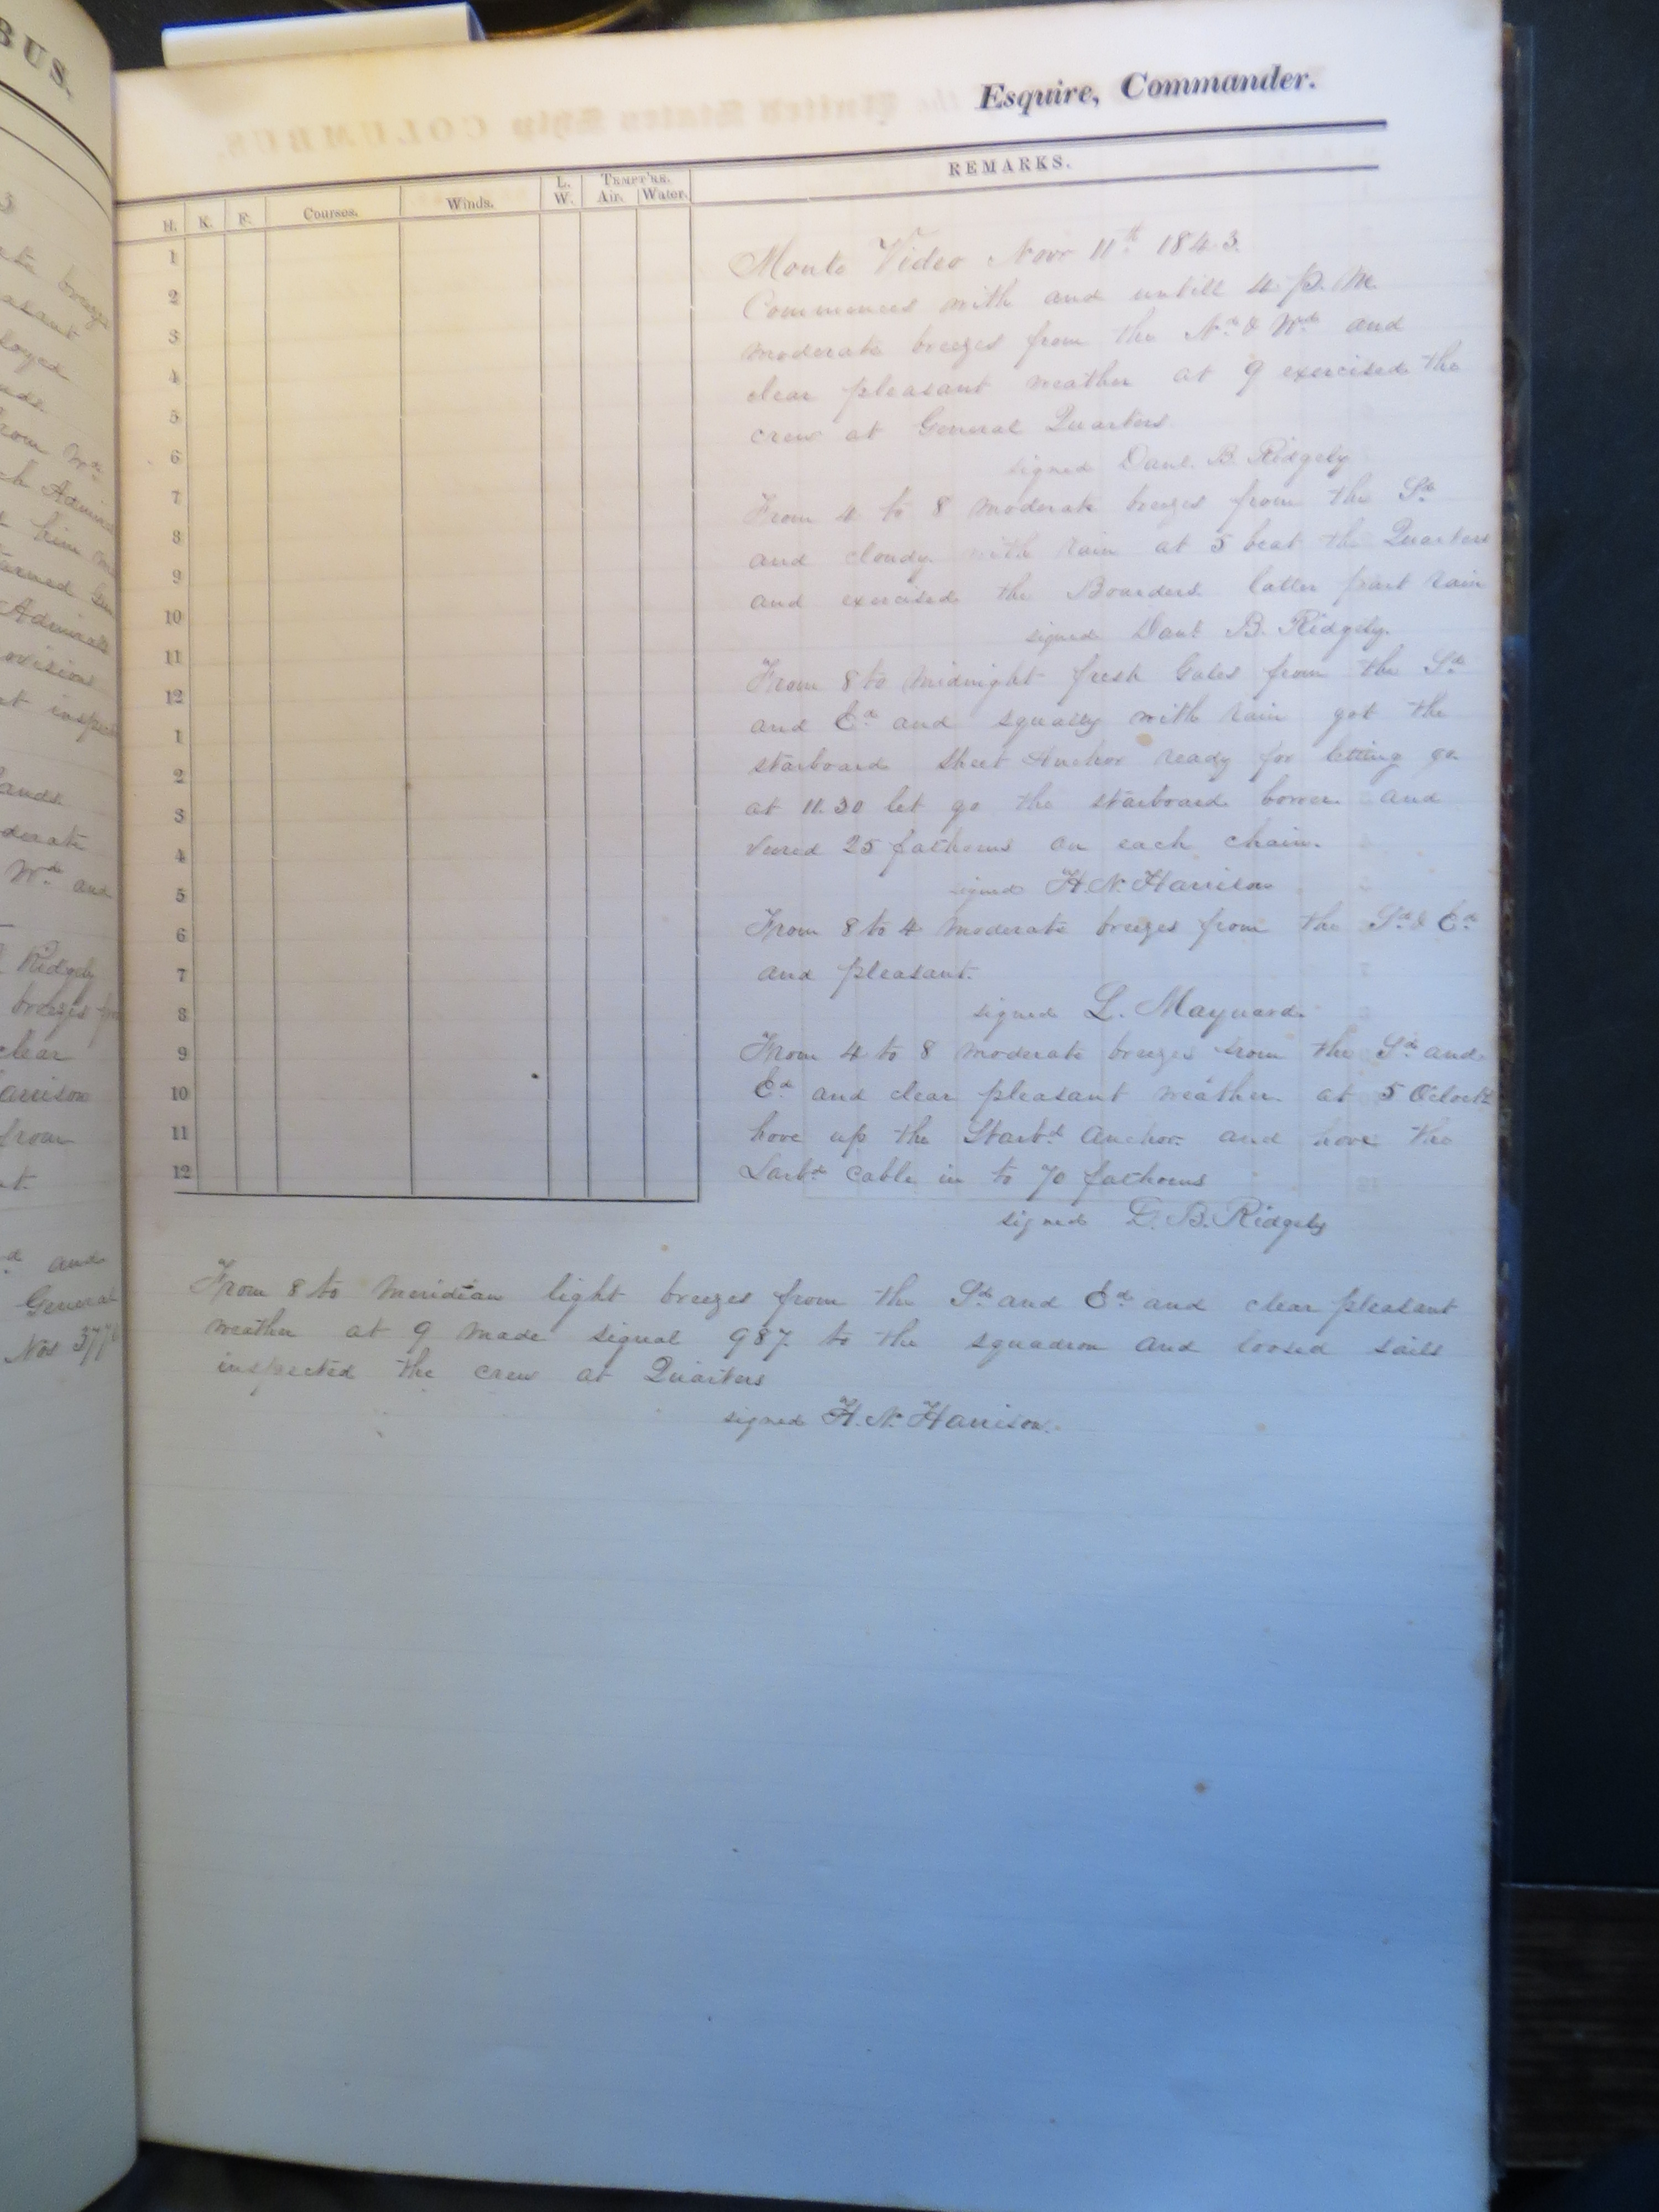 BUS.
Esquire, Commander.
REMARKS.
H. K. F. Courses. Winds. L. W. TEMPT'RE. Air. Water.
1
2
3
4
5
6
7
8
9
10
11
12
1
2
3
4
5
6
7
8
9
10
11
12
Monte Video Novr 11th 1843.
Commences with and untill 4 p. M.
moderate breezes from the Nd & Wd and
clear pleasant weather at 9 exercised the
crew at General Quarters
signed Danl. B Ridgely
From 4 to 8 moderate breezes from the Sd
and cloudy with rain at 5 beat the Quarters
and exercised the Boarders latter part rain
signed Danl B. Ridgely.
From 8 to midnight fresh Gales from the Sd
and Ed and squally with rain got the
starboard sheet Anchor ready for letting go
at 11.30 let go the starboard bower and
veered 25 fathoms on each chain.
signed H. N. Harrison
From 8 to 4 moderate breezes from the Sd & Ed
and pleasant.
signed L. Maynard.
From 4 to 8 moderate breezes from the Sd and
Ed and clear pleasant weather at 5 Oclock
hove up the Starbd Anchor and hove the
Larbd cable in to 70 fathoms
signed D. B. Ridgely
From 8 to Meridian light breezes from the Sd and Ed and clear pleasant
weather at 9 made signal 987 to the squadron and loosed sails
inspected the crew at Quarters
signed H. N. Harrison.